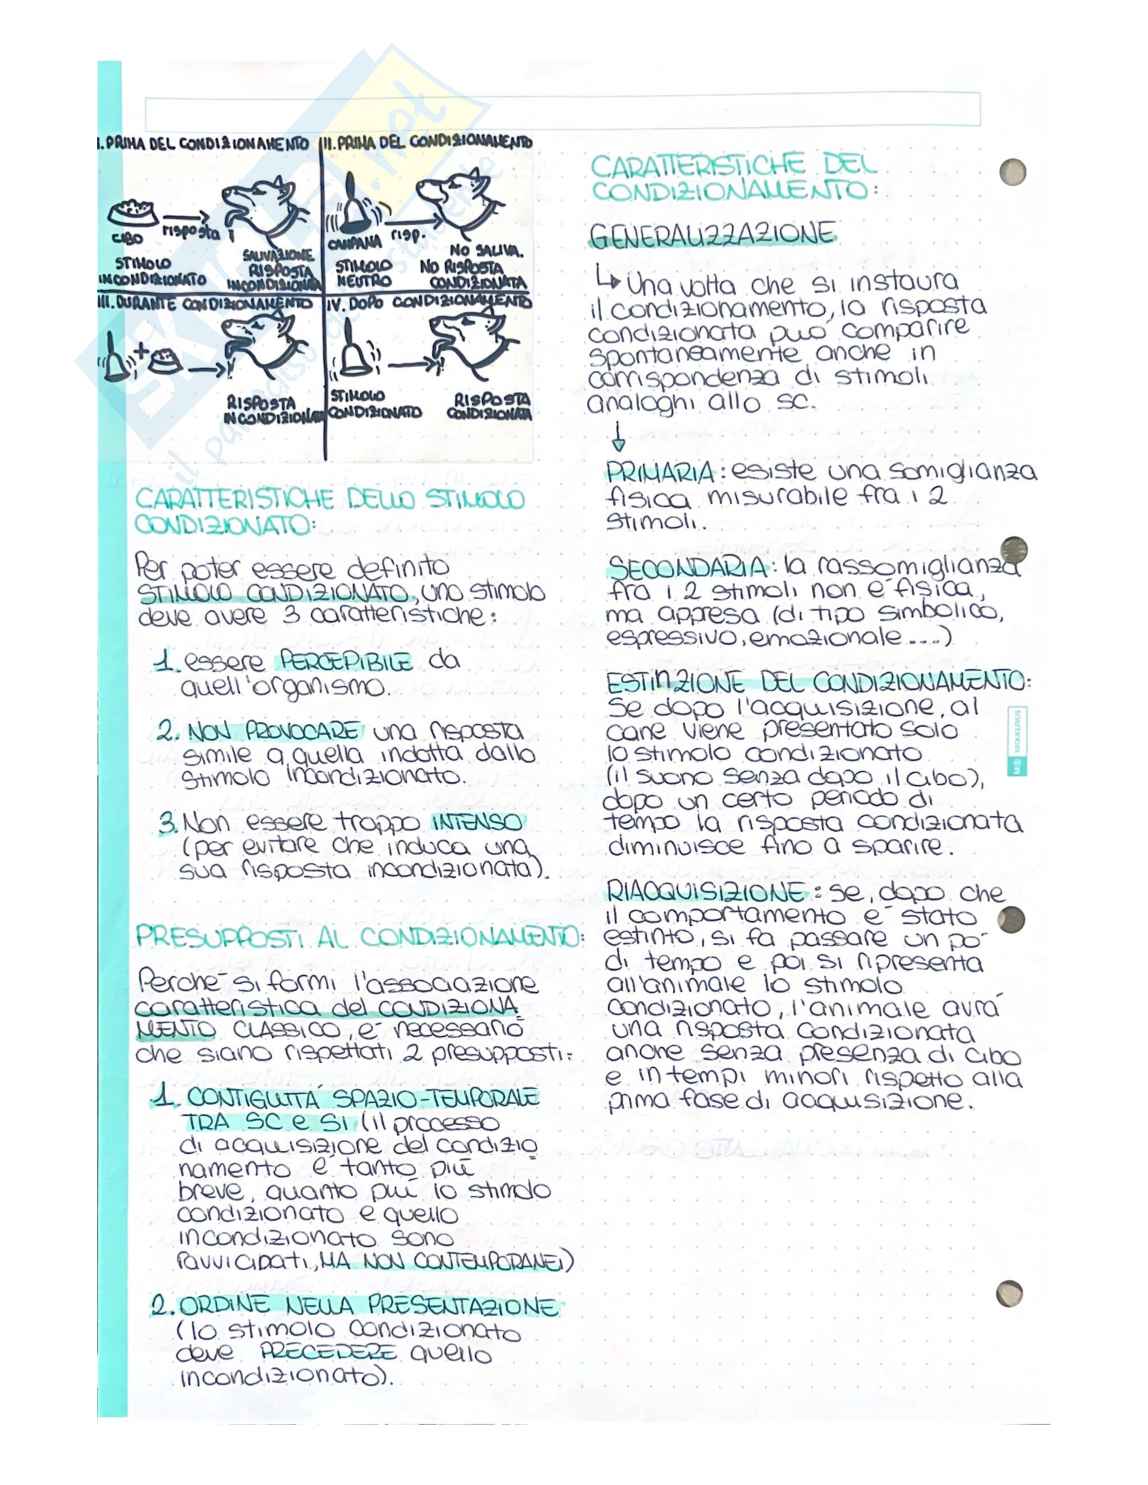 I. PRIMA DEL CONDIZIONAMENTO
CIBO
risposta
STIMOLO
INCONDIZIONATO
SALIVAZIONE
RISPOSTA
INCONDIZIONATA
II. PRIMA DEL CONDIZIONAMENTO
CAMPANA
risp.
STIMOLO
NEUTRO
NO SALIVA.
NO RISPOSTA
CONDIZIONATA
III. DURANTE CONDIZIONAMENTO
+
RISPOSTA
INCONDIZIONATA
IV. DOPO CONDIZIONAMENTO
STIMOLO
CONDIZIONATO
RISPOSTA
CONDIZIONATA
CARATTERISTICHE DELLO STIMOLO
CONDIZIONATO:
Per poter essere definito
STIMOLO CONDIZIONATO, uno stimolo
deve avere 3 caratteristiche:
1. essere PERCEPIBILE da
quell'organismo.
2. NON PROVOCARE una risposta
simile a quella indotta dallo
stimolo incondizionato.
3. Non essere troppo INTENSO
(per evitare che induca una
sua risposta incondizionata).
PRESUPPOSTI AL CONDIZIONAMENTO:
Perché si formi l'associazione
caratteristica del CONDIZIONA
MENTO CLASSICO, é necessario
che siano rispettati 2 presupposti:
1. CONTIGUITÁ SPAZIO-TEMPORALE
TRA SC e SI (il processo
di acquisizione del condizio
namento é tanto piú
breve, quanto piú lo stimolo
condizionato e quello
incondizionato sono
ravvicinati, MA NON CONTEMPORANEI)
2. ORDINE NELLA PRESENTAZIONE
(lo stimolo condizionato
deve PRECEDERE quello
incondizionato).
CARATTERISTICHE DEL
CONDIZIONAMENTO:
GENERALIZZAZIONE
↳ Una volta che si instaura
il condizionamento, la risposta
condizionata può comparire
spontaneamente anche in
corrispondenza di stimoli
analoghi allo SC.
↓
PRIMARIA: esiste una somiglianza
fisica misurabile fra i 2
stimoli.
SECONDARIA: la rassomiglianza
fra i 2 stimoli non é fisica,
ma appresa (di tipo simbolico,
espressivo, emozionale....)
ESTINZIONE DEL CONDIZIONAMENTO:
Se dopo l'acquisizione, al
cane viene presentato solo
lo stimolo condizionato
(il suono senza dopo il cibo),
dopo un certo periodo di
tempo la risposta condizionata
diminuisce fino a sparire.
RIACQUISIZIONE: se, dopo che
il comportamento é stato
estinto, si fa passare un po'
di tempo e poi si ripresenta
all'animale lo stimolo
condizionato, l'animale avrá
una risposta condizionata
anche senza presenza di cibo
e in tempi minori rispetto alla
prima fase di acquisizione.